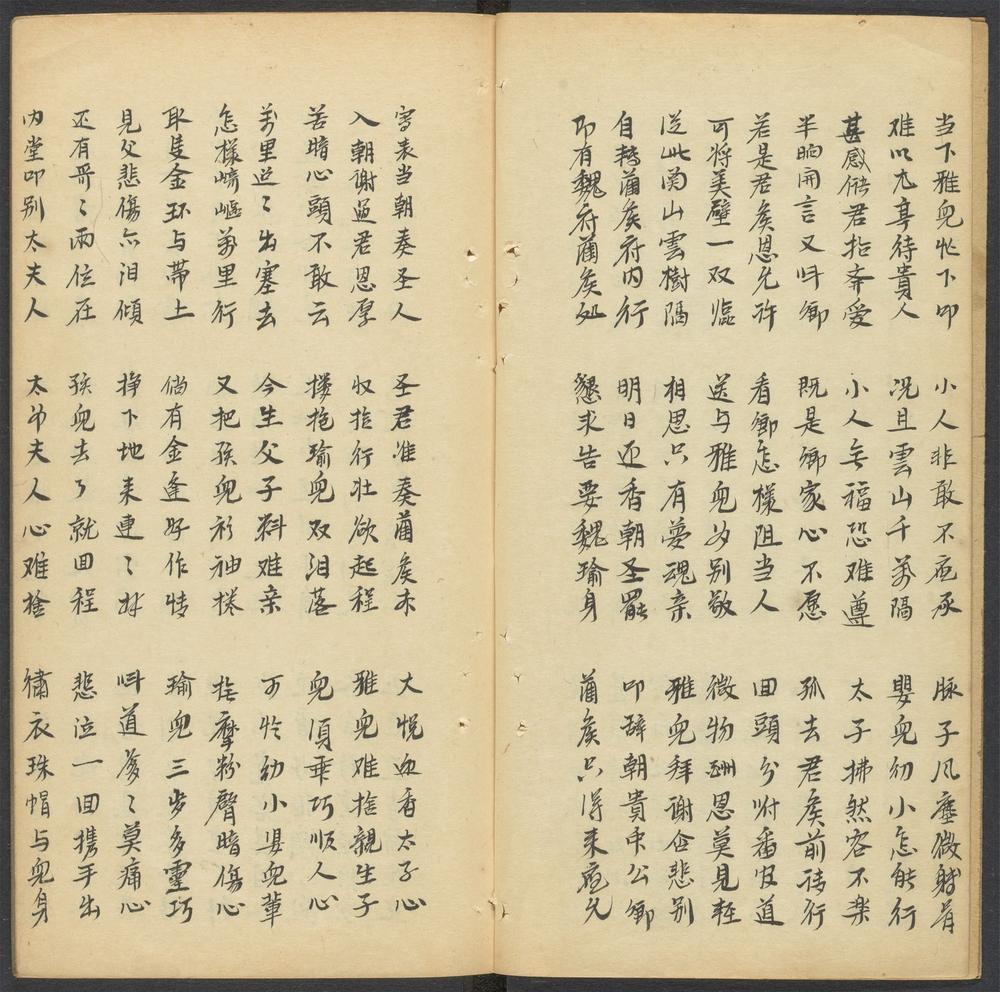 当下雅兒忙下叩　小人非敢不应承　脉子风塵微賤骨
难以尤享待貴人　况且雲山千萬隔　嬰兒幼小怎能行
甚感儲君抬奔愛　小人无福恐难遵　太子拂然容不楽
半晌開言又叫卿　既是卿家心不愿　孤去君侯前请行
若是君侯恩允许　看卿怎樣阻当人　回頭分咐番官道
可将美璧一双臨　送与雅兒为别敬　微物酬恩莫見輕
从此関山雲樹隔　相思只有夢魂亲　雅兒拜谢含悲别
自轉藺侯府内行　明日还香朝圣罷　叩辞朝貴众公卿
即有魏府藺侯处　懇求告要魏瑜身　藺侯只得来应允
寫表当朝奏圣人　圣君准奏藺侯本　大悅血香太子心
入朝谢過君恩厚　收拾行壮欲起程　雅兒难捨親生子
苦暗心頭不敢云　摟抱瑜兒双泪落　兒須乖巧順人心
萬里迢々出塞去　今生父子料难亲　可怜幼小嬰兒輩
怎樣崎嶇萬里行　又把孩兒衫袖捲　摩粉臂暗傷心
取隻金环与帶上　倘有金逢好作情　瑜兒三步多靈巧
見父悲傷亦泪傾　掙下地来連々拜　叫道爹々莫痛心
还有哥々兩位在　孩兒去了就回程　悲泣一回携手出
内堂叩别太夫人　太爷夫人心难捨　繡衣珠帽与兒身